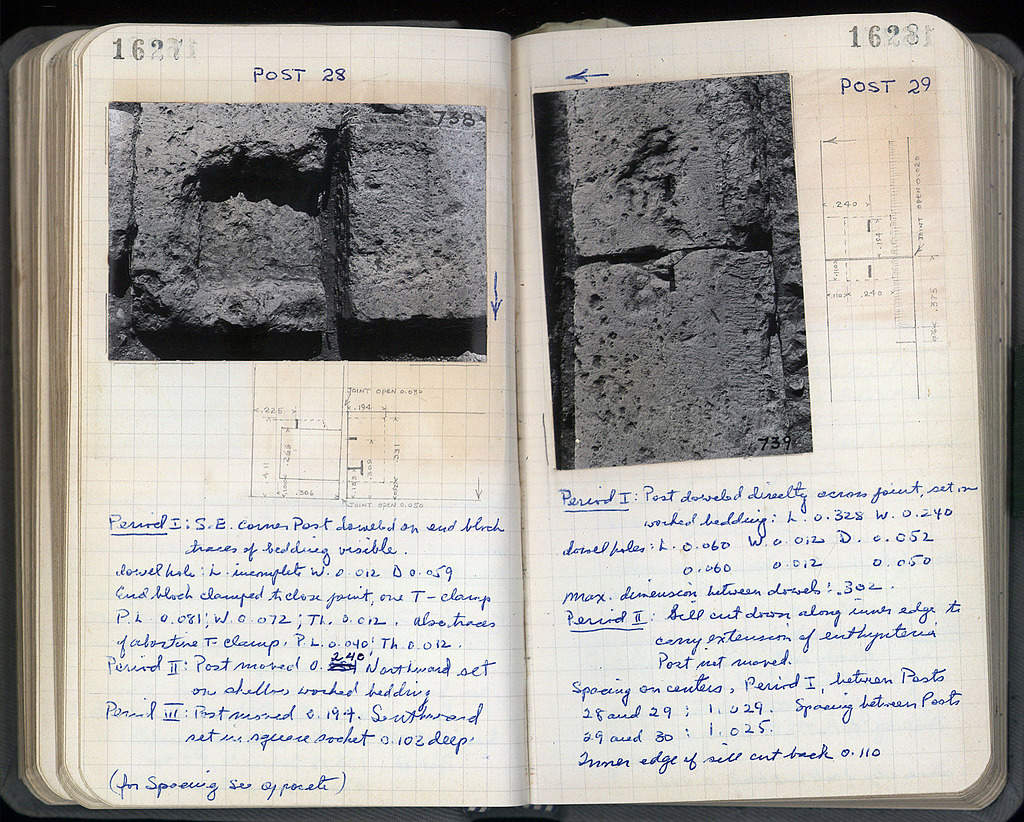 POST 28
738
JOINT OPEN 0.030
.225
.194
.411
.265
.331
.309
.306
JOINT OPEN 0.050
Period I: S.E. corner Post doweled on end block
traces of bedding visible.
dowel hole: L. incomplete W. 0.012 D 0.059
End block clamped to close joint, one T-clamp
P.L. 0.081; W. 0.072; Th. 0.012. also traces
of abortive T-clamp. P.L. 0.040; Th. 0.012.
Period II: Post moved 0.240 Northward set
on shallow worked bedding
Period III: Post moved 0.194. Southward
set in square socket 0.102 deep.
(for Spacing see opposite)
POST 29
739
.240
.194
JOINT OPEN 0.020
.110
.110
.240
.375
Period I: Post doweled directly across joint, set on
worked bedding: L. 0.328 W. 0.240
dowel holes: L. 0.060 W. 0.012 D. 0.052
0.060 0.012 0.050
max. dimension between dowels: .302.
Period II: Sill cut down along inner edge to
carry extension of euthynteria
Post not moved.
Spacing on centers, Period I, between Posts
28 and 29: 1.029. Spacing between Posts
29 and 30: 1.025.
Inner edge of sill cut back 0.110